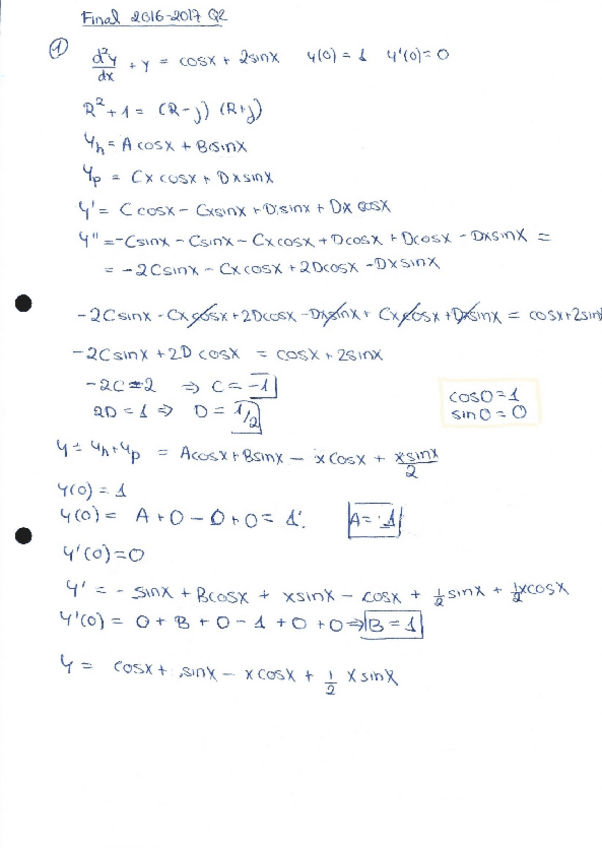 Final 2016-2017 Q2
① d²y/dx + y = cosx + 2sinx   y(0) = 1   y'(0) = 0
R² + 1 = (R-j) (R+j)
Yh = A cosx + Bsinx
Yp = Cx cosx + Dx sinx
y' = C cosx - Cxsinx + D sinx + Dx cosx
y'' = -Csinx - Csinx - Cx cosx + Dcosx + Dcosx - Dxsinx =
= -2Csinx - Cx cosx + 2Dcosx - Dx sinx
-2C sinx - Cx cosx + 2Dcosx - Dxsinx + Cx cosx + Dxsinx = cosx + 2sinx
-2C sinx + 2D cosx = cosx + 2sinx
-2C = 2 ⇒ C = -1
cos0 = 1
2D = 1 ⇒ D = 1/2
sin0 = 0
y = yh + yp = Acosx + Bsinx - x cosx + xsinx/2
y(0) = 1
y(0) = A + 0 - 0 + 0 = 1   A = 1
y'(0) = 0
y' = - sinx + Bcosx + xsinx - cosx + 1/2 sinx + 1/2 xcosx
y'(0) = 0 + B + 0 - 1 + 0 + 0 ⇒ B = 1
y = cosx + sinx - x cosx + 1/2 x sinx